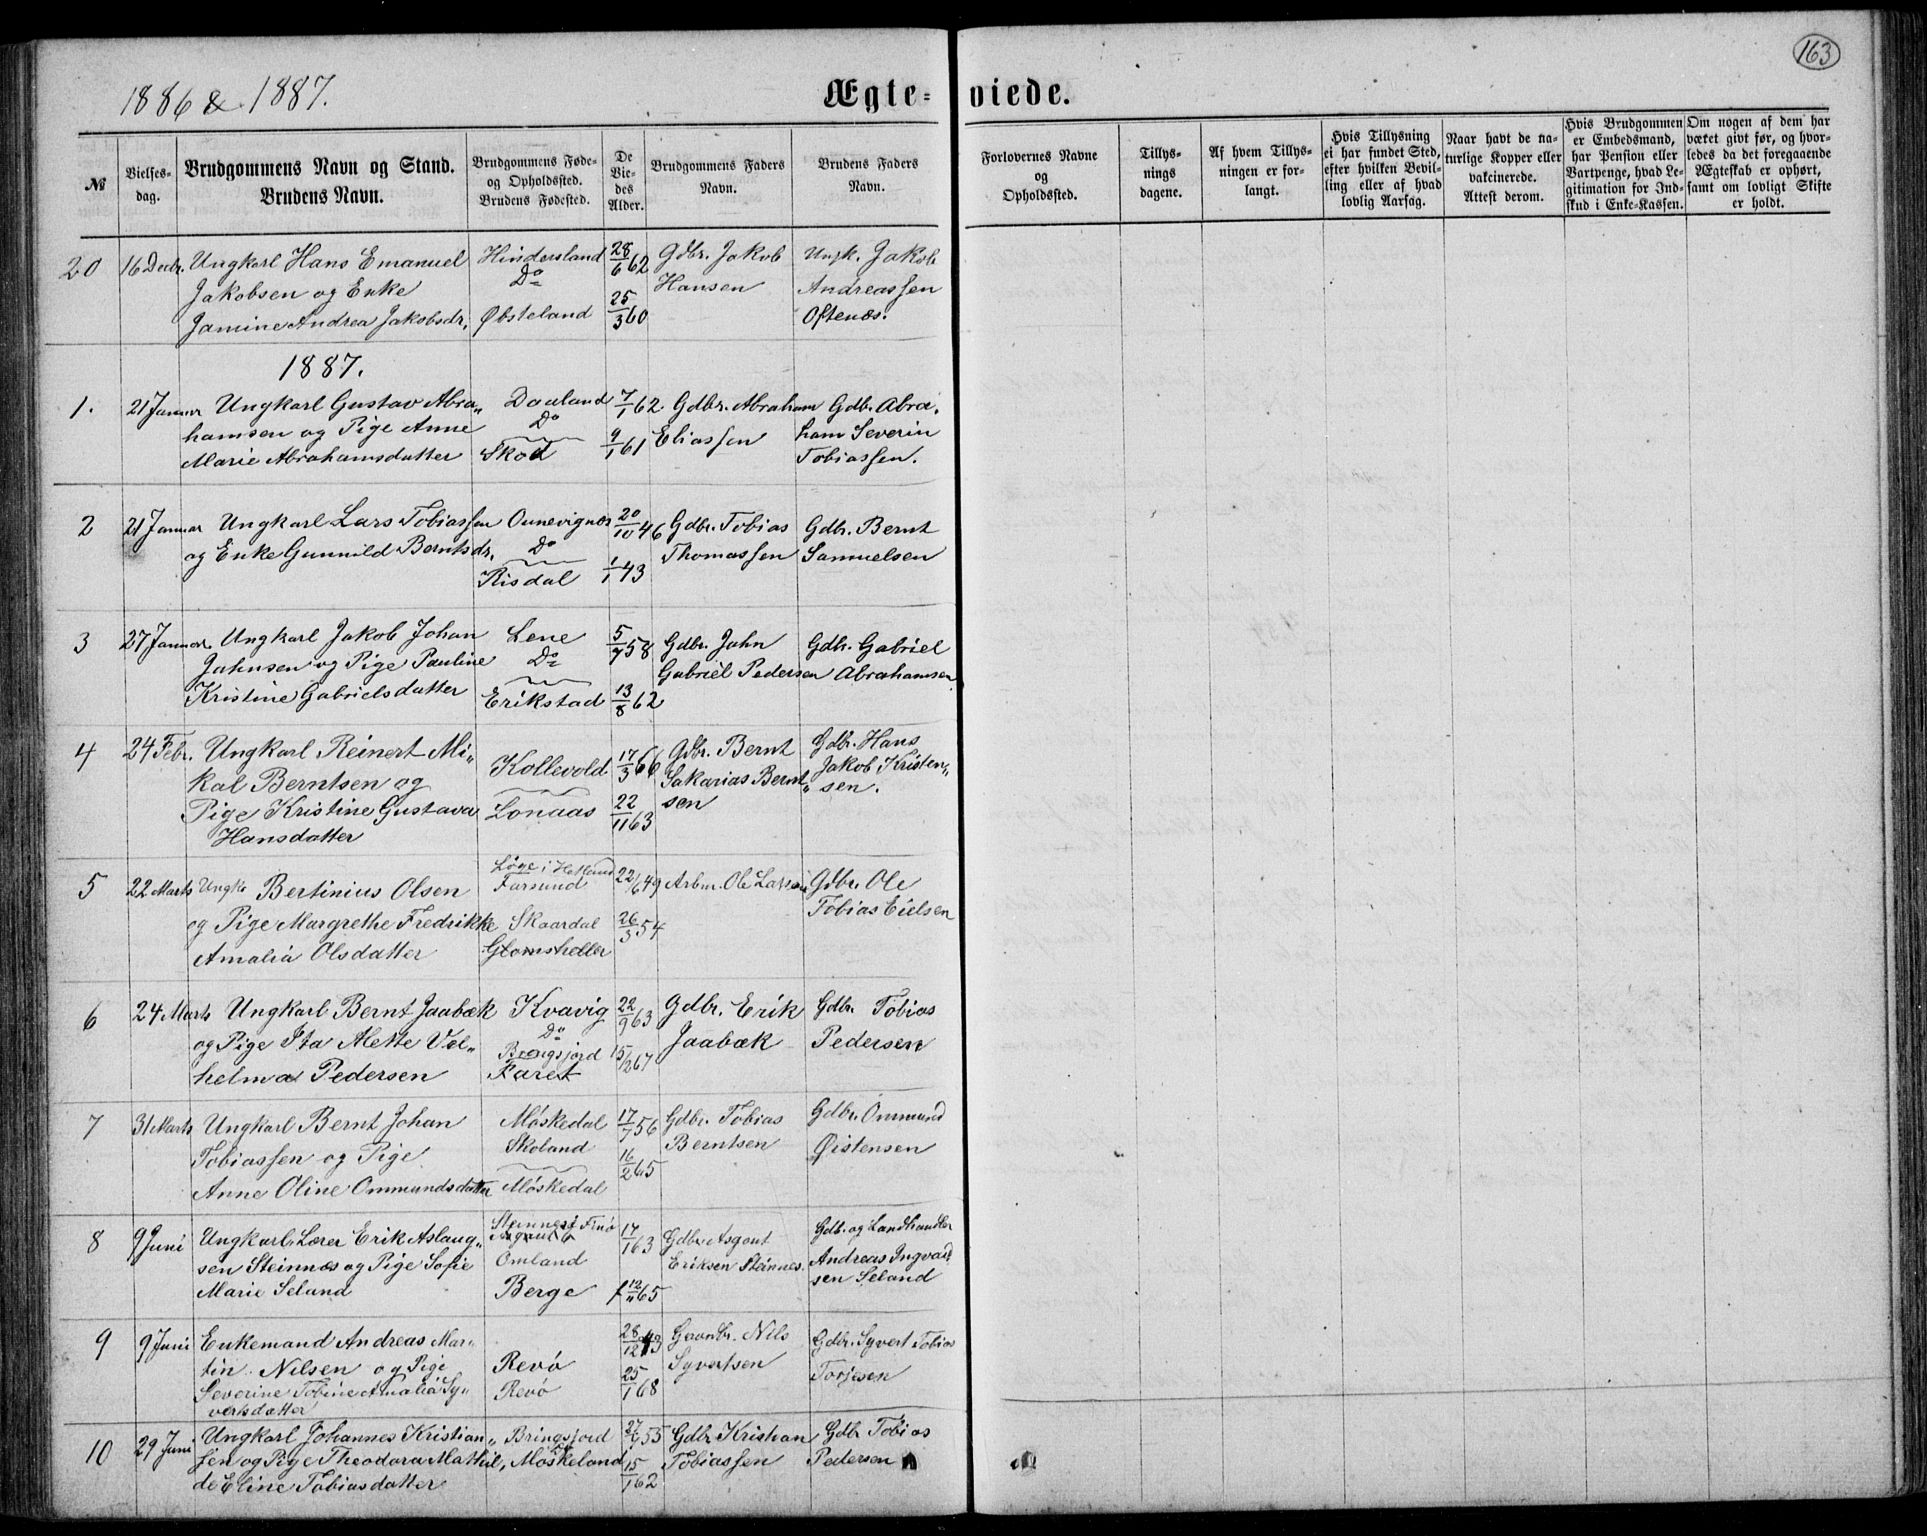 163
1886 & 1887.
Ægte= viede.
№
Vielses-
dag.
Brudgommens Navn og Stand.
Brudens Navn.
Brudgommens Føde-
og Opholdssted.
Brudens Fødested.
De
Vie-
des
Alder.
Brudgommens Faders
Navn.
Brudens Faders
Navn.
Forlovernes Navne
og
Opholdssted.
Tillys-
nings
dagene.
Af hvem Tillys-
ningen er for-
langt.
Hvis Tillysning
ei har fundet Sted,
efter hvilken Bevil-
ling eller af hvad
lovlig Aarsag.
Naar havt de na-
turlige Kopper eller
vakcinerede.
Attest derom.
Hvis Brudgommen
er Embedsmand,
har Pension eller
Vartpenge, hvad Le-
gitimation for Ind-
skud i Enke-Kassen.
Om nogen af dem har
været givt før, og hvor-
ledes da det foregaaende
Ægteskab er ophørt,
samt om lovligt Skifte
er holdt.
20 16 Decbr. Ungkarl Hans Emanuel Hindersland 28/6 62 Gdbr. Jakob Ungk. Jakob
Jakobsen og Enke Do Hansen Andreassen
Jamine Andrea Jakobsdr. Øbsteland 25/3 60 Oftenæs.
1887.
1. 21 Januar Ungkarl Gustav Abra„ Daaland 7/1 62 Gdbr. Abraham Gdb. Abra„
hamsen og Pige Anne Do Eliassen ham Severin
Marie Abrahamsdatter Skod 9/1 61 Tobiassen.
2 21 Januar Ungkarl Lars Tobiassen Ounevignæs 20/10 46 Gdbr. Tobias Gdbr. Bernt
og Enke Gunnild Berntsdr. Do Thomassen Samuelsen
Risdal 1/1 43
3 27 Januar. Ungkarl Jakob Johan Lene 5/7 58 Gdbr. Jahn Gdbr. Gabriel
Jahnsen og Pige Pauline Do Gabriel Pedersen Abrahamsen
Kristine Gabrielsdatter Erikstad 13/8 62
4 24 Febr. Ungkarl Reinert Mi„ Kollevold 17/3 66 Gdbr. Bernt Gdbr. Hans
kal Berntsen og Sakarias Bernt„ Jakob Kristen„
Pige Kristine Gustava Lonaas 22/11 63 sen sen.
Hansdatter
5 22 Marts Ungk. Bertinius Olsen Løge i Hetland Farsund 22/6 49 Arbm. Ole Larsen Gdbr. Ole
og Pige Margrethe Fredrikke Skaardal 26/3 54 Tobias Eielsen
Amalia Olsdatter Glomsheller
6 24 Marts Ungkarl Bernt Jaabæk Kvavig 22/9 63 Gdbr. Erik Gdbr. Tobias
og Pige Ita Alette Vel„ Do Bringsjord 15/12 67 Jaabæk Pedersen
helma Pedersen Faret
7 31 Marts Ungkarl Bernt Johan Möskedal 17/7 56 Gdbr. Tobias Gdbr. Ommund
Tobiassen og Pige Skoland Berntsen Øistensen
Anne Oline Ommundsdatter Möskedal 16/2 65
8 9 Juni Ungkarl, Lærer Erik Aslaug„ Steinnes i Finö 17/1 63 Gdbr. Asgaut Gdbr. og Landhandler
sen Steinnes og Pige Sofie Omland Eriksen Steinnes. Andreas Ingvald
Marie Seland Berge 12/11 65 sen Seland
9 9 Juni Enkemand Andreas Mar„ 28/12 43 Gaardbr. Nils Gdbr. Syvert Tobias
tin Nilsen og Pige Revö Syvertsen Torjesen
Severine Tobine Amalia Sy„ Revö 25/1 68
vertsdatter
10 29 Juni Ungkarl Johannes Kristian„ Bringsjord 27/7 55 Gdbr Kristian Gdbr Tobias
sen og Pige Theodora Mathil„ Möskeland Tobiassen Pedersen
de Eline Tobiasdatter 15/1 62